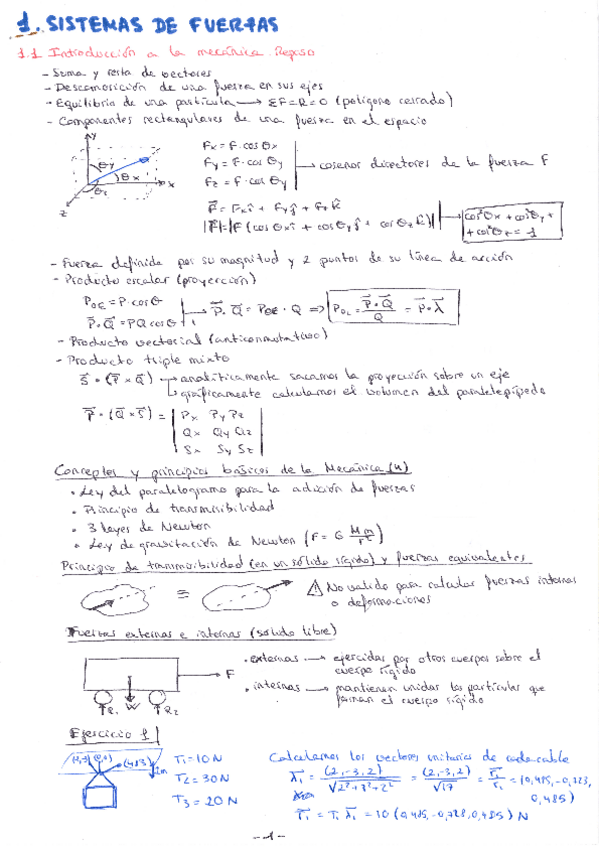 1. SISTEMAS DE FUERZAS
1.1 Introducción a la mecánica. Repaso
- Suma y resta de vectores
- Descomposición de una fuerza en sus ejes
- Equilibrio de una partícula → ΣF=R=0 (polígono cerrado)
- Componentes rectangulares de una fuerza en el espacio
y
θy
θx
x
θz
z
Fx = F·cosθx
Fy = F·cosθy
Fz = F·cosθz
→ cosenos directores de la fuerza F
F⃗ = Fx î + Fy ĵ + Fz k̂
|F⃗| = |F (cosθx î + cosθy ĵ + cosθz k̂)| → cos²θx + cos²θy + + cos²θz = 1
- Fuerza definida por su magnitud y 2 puntos de su línea de acción
- Producto escalar (proyección)
POL = P·cosθ
P⃗·Q⃗ = PQ cosθ
→ P⃗·Q⃗ = POL·Q ⇒ POL = P⃗·Q⃗ / Q = P⃗·λ⃗
- Producto vectorial (anticonmutativo)
- Producto triple mixto
S⃗·(P⃗×Q⃗) → analíticamente sacamos la proyección sobre un eje
→ gráficamente calculamos el volumen del paralelepípedo
P⃗·(Q⃗×S⃗) = | Px Py Pz
Qx Qy Qz
Sx Sy Sz |
Conceptos y principios básicos de la Mecánica (4)
• Ley del paralelogramo para la adición de fuerzas
• Principio de transmisibilidad
• 3 leyes de Newton
• Ley de gravitación de Newton (F = G Mm/r²)
Principio de transmisibilidad (en un sólido rígido) y fuerzas equivalentes
≡
⚠ No valido para calcular fuerzas internas
o deformaciones
Fuerzas externas e internas (sólido libre)
F
R1 W R2
• externas → ejercidas por otros cuerpos sobre el
cuerpo rígido
• internas → mantienen unidas las partículas que
forman el cuerpo rígido
Ejercicio 1
T1 = 10 N
T2 = 30 N
T3 = 20 N
Calculamos los vectores unitarios de cada cable
λ⃗1 = (2,-3,2) / √2²+3²+2² = (2,-3,2) / √17 = r⃗1/r1 = (0,485,-0,723,
0,485)
T⃗1 = T1 λ⃗1 = 10 (0,485,-0,728,0,485) N
-1-